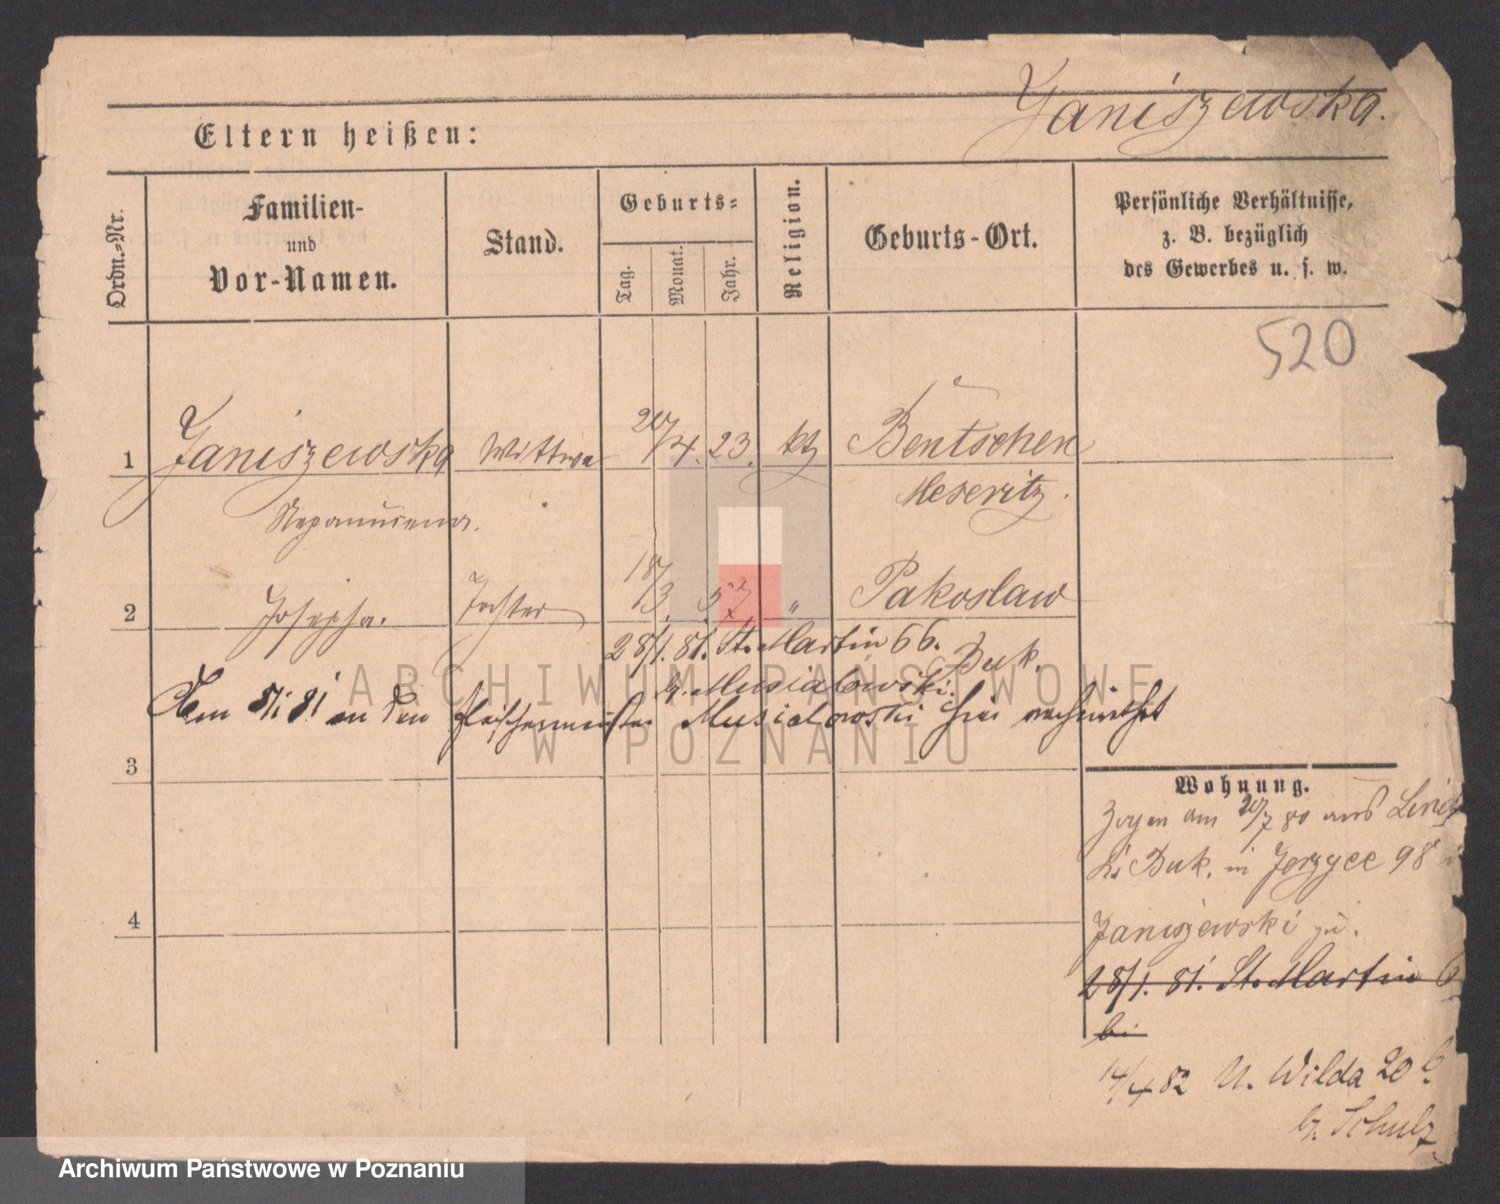 Janiszewska.
Eltern heißen:
Ordn.-Nr.
Familien-
und
Vor-Namen.
Stand.
Geburts-
Tag.
Monat.
Jahr.
Religion.
Geburts-Ort.
Persönliche Verhältnisse,
z. B. bezüglich
des Gewerbes u. s. w.
520
1 Janiszewska Wittwe 20/4. 23. kth Bentschen
Nepomucena. Meseritz.
2 Josepha. Tochter 18/3. 57 " Pakoslaw
28/1. 81. St. Martin 66. Buk.
b. Musialowski.
Am 81 an den Fleischermeister Musialowski hier verheirathet
3
4
Wohnung.
Zogen am 20/7 80 aus
Kr. Buk, in Jerzyce 98
Janiszewski zu.
28/1. 81. St. Martin 6
bei
14/4 82 U. Wilda 20 b.
b. Schulz
ARCHIWUM PAŃSTWOWE
W POZNANIU
Archiwum Państwowe w Poznaniu